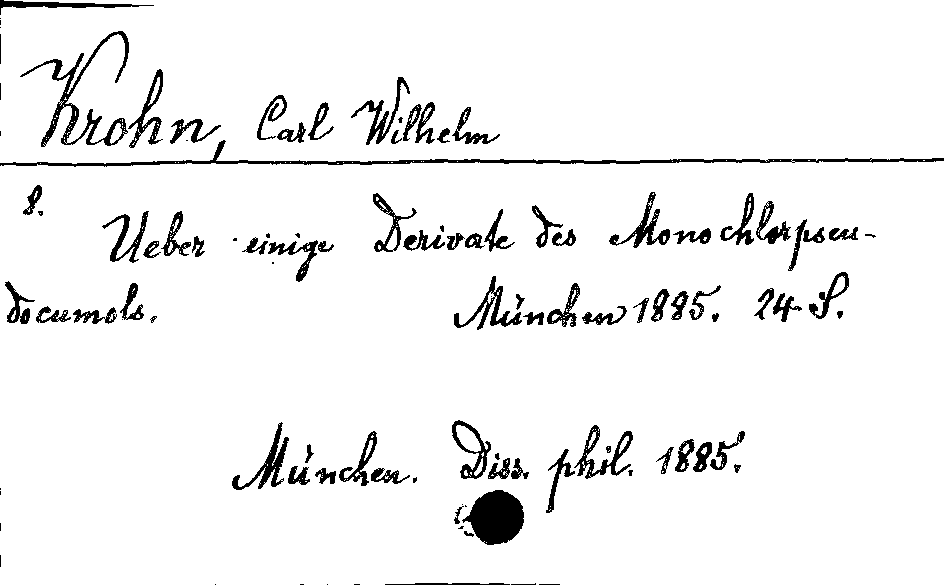 Krohn, Carl Wilhelm
8.
Ueber einige Derivate des Monochlorpseu-
documols.
München 1885. 24 S.
München. Diss. phil. 1885.